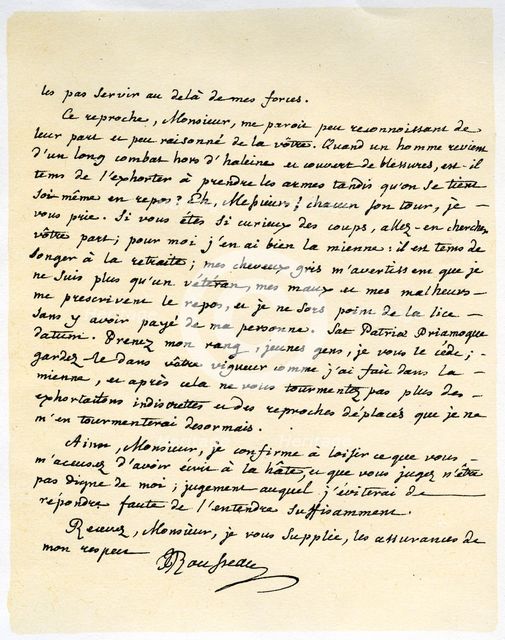 les pas servir au delà de mes forces.
Ce reproche, Monsieur, me paroit peu reconnoissant de
leur part et peu raisonné de la vôtre. Quand un homme revient
d'un long combat hors d'haleine et couvert de blessures, est-il
tems de l'exhorter à prendre les armes tandis qu'on se tient
soi-même en repos? Eh, Messieurs! chacun son tour, je
vous prie. Si vous êtes si curieux des coups, allez-en chercher
vôtre part; pour moi j'en ai bien la mienne: il est tems de
songer à la retraite; mes cheveux gris m'avertissent que je
ne suis plus qu'un vétéran, mes maux et mes malheurs
me prescrivent le repos, et je ne sors point de la lice
sans y avoir payé de ma personne. Sat Patriæ Priamoque
datum. Prenez mon rang, jeunes gens, je vous le cède;
gardez-le dans vôtre vigueur comme j'ai fait dans la
mienne, et après cela ne vous tourmentez pas plus des
exhortations indiscrettes et des reproches déplacés que je ne
m'en tourmenterai desormais.
Ainsi, Monsieur, je confirme à loisir ce que vous
m'accusez d'avoir écrit à la hâte, et que vous jugez n'être
pas digne de moi; jugement auquel j'éviterai de
répondre faute de l'entendre suffisamment.
Recevez, Monsieur, je vous supplie, les assurances de
mon respect
JJRousseau
Heritage Heritage